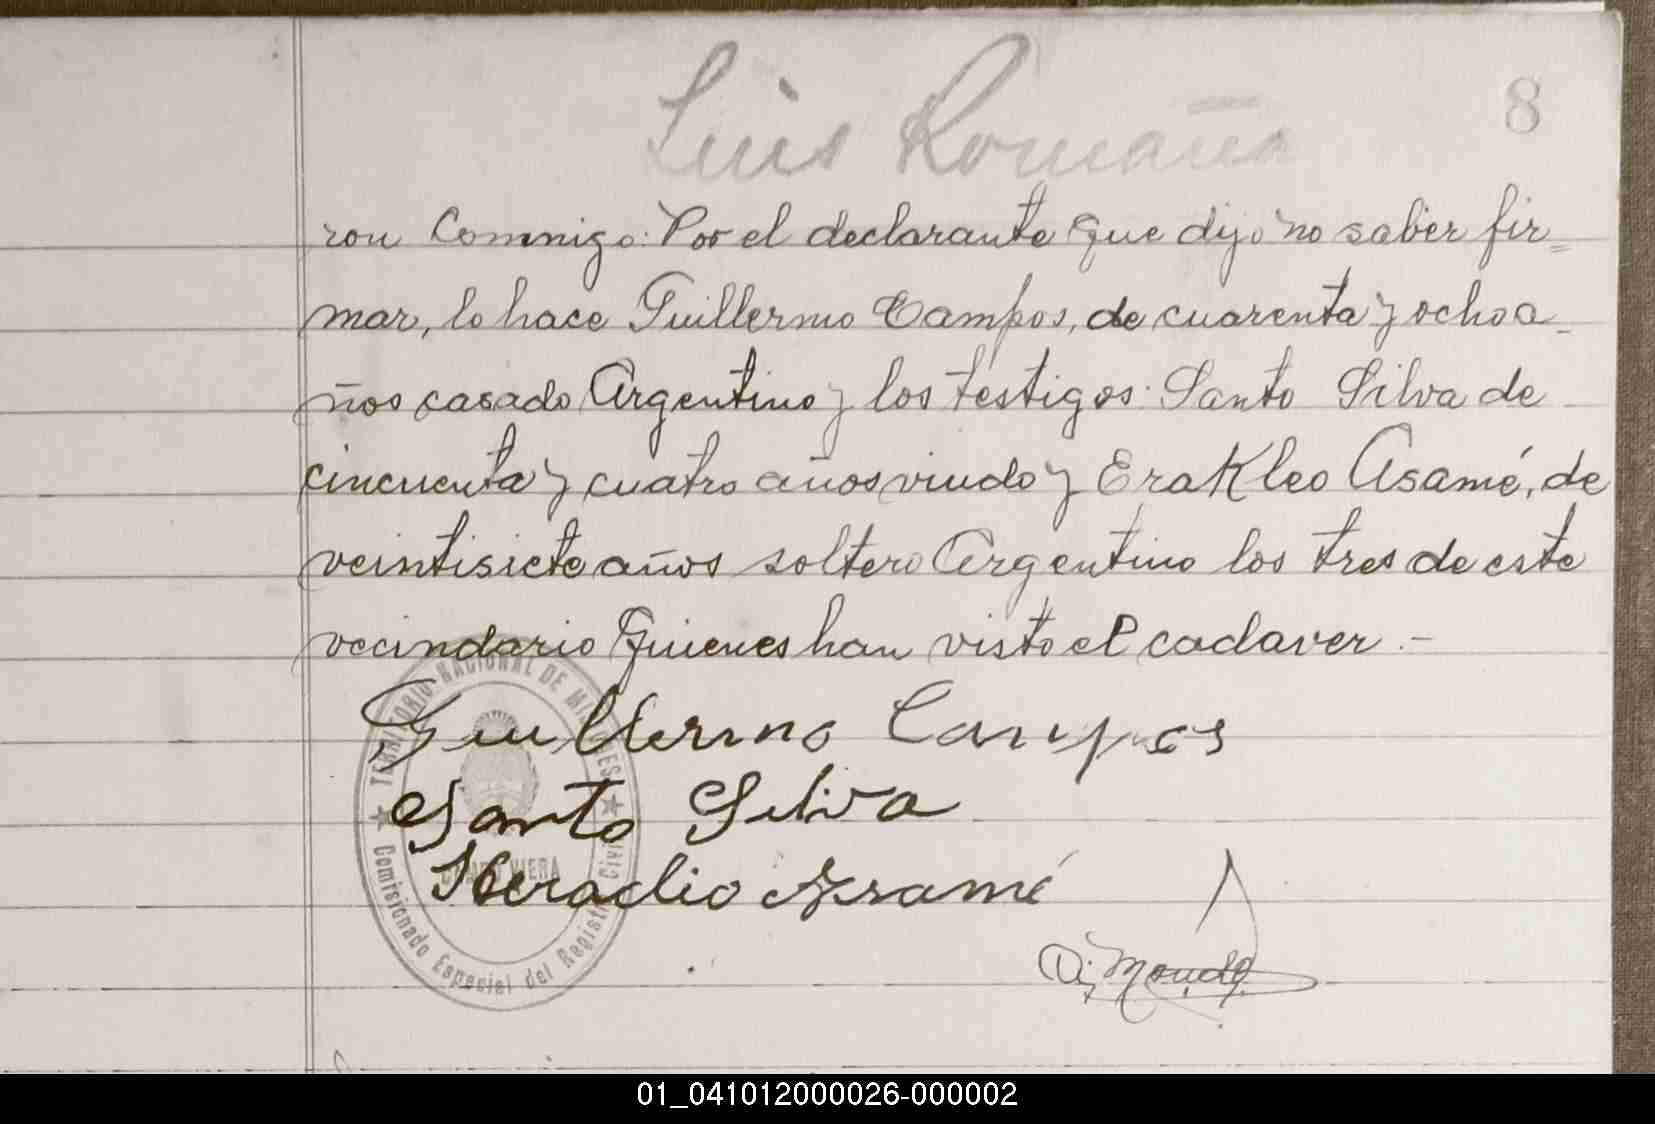 Luis Romaña
8
ron Commigo: Por el declarante que dijo no saber fir=
mar, lo hace Guillermo Campos, de cuarenta y ocho a-
ños casado Argentino y los testigos: Santo Silva de
cincuenta y cuatro años viudo y Erakleo Asamé, de
veintisiete años soltero Argentino los tres de este
vecindario quienes han visto el cadaver.-
Guillermo Campos
Santo Silva
Heraclio Asamé
TERRITORIO NACIONAL DE MISIONES
Comisionado Especial del Registro Civil
01_041012000026-000002